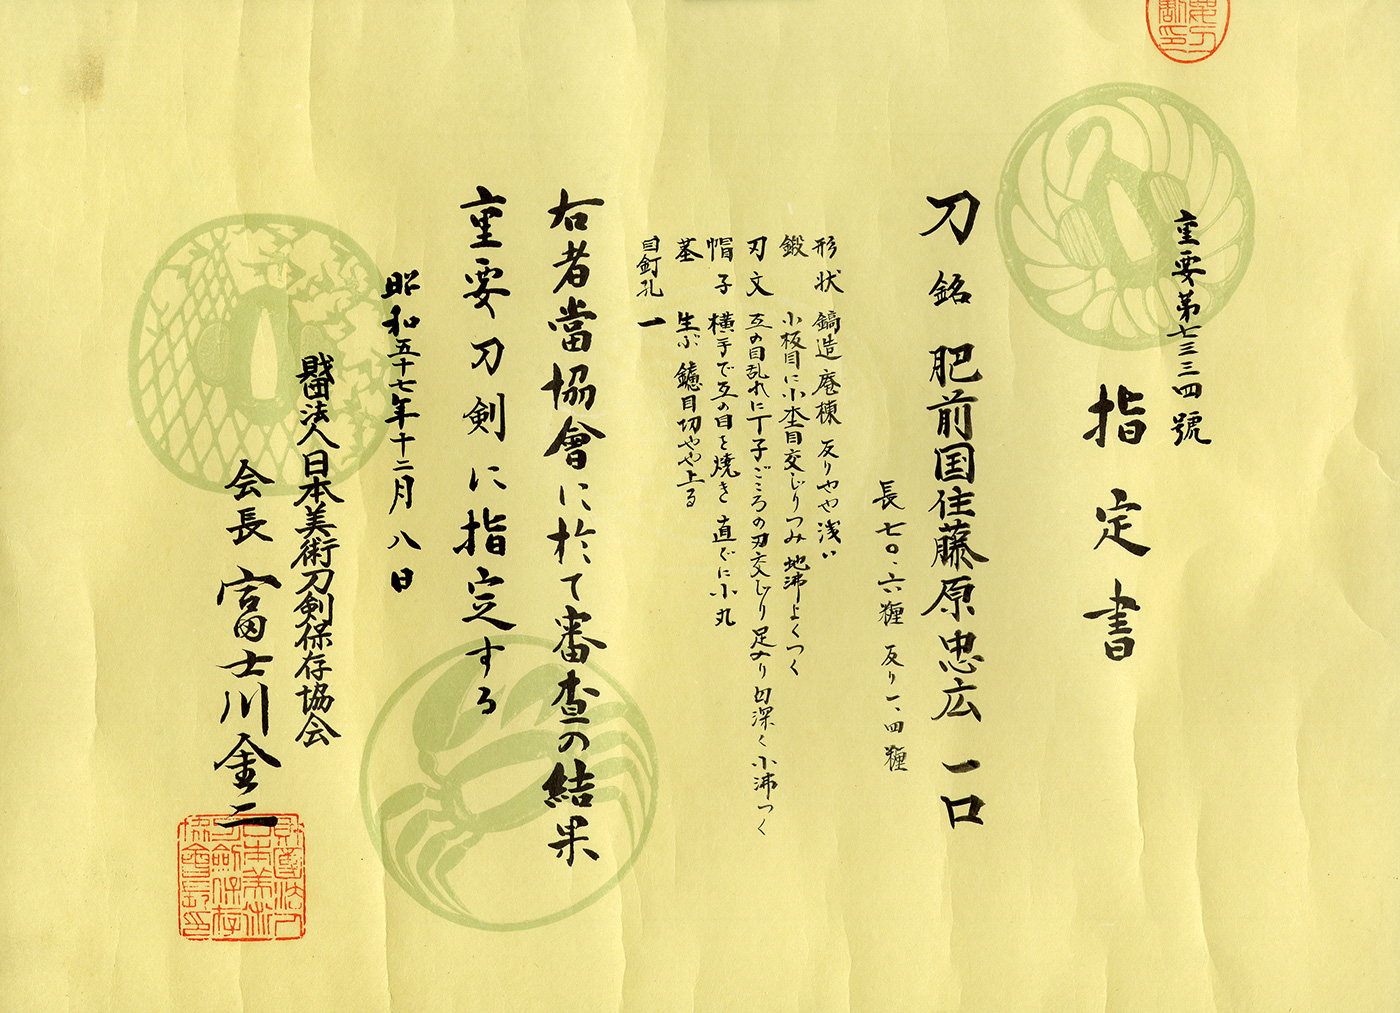 重要第七三三四號
指定書
刀 銘 肥前国住藤原忠広 一口
長 七〇、六糎 反り 一、四糎
形状 鎬造 庵棟 反りやや浅い
鍛 小板目に小杢目交じりつみ 地沸よくつく
刃文 互の目乱れに丁子ごころの刃交じり 足入り 匂深く 小沸つく
帽子 横手で互の目を焼き 直ぐに小丸
茎 生ぶ 鑢目切やや上る
目釘孔 一
右者當協會に於て審査の結果
重要刀剣に指定する
昭和五十七年十二月八日
財団法人日本美術刀剣保存協会
会長 富士川金二